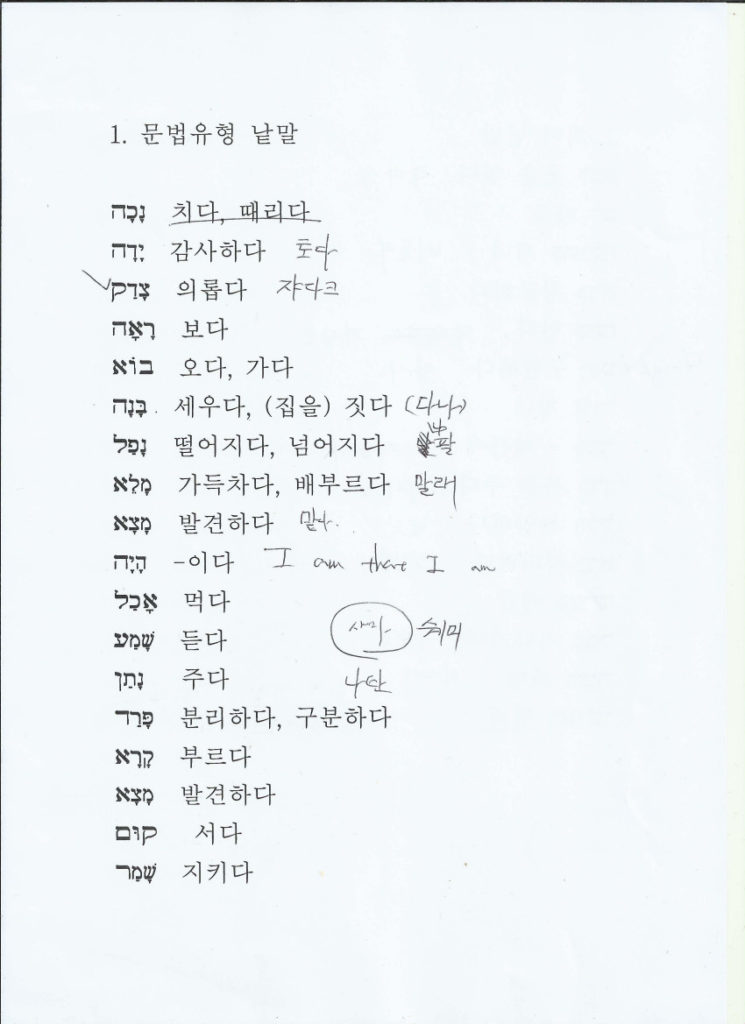 1. 문법유형 낱말
נָכָה 치다, 때리다
יָדָה 감사하다 토다
צָדַק 의롭다 쟈다크
רָאָה 보다
בוֹא 오다, 가다
בָּנָה 세우다, (집을) 짓다
נָפַל 떨어지다, 넘어지다
מָלֵא 가득차다, 배부르다 말래
מָצָא 발견하다
הָיָה -이다 I am there I am
אָכַל 먹다
שָׁמַע 듣다 샤마 쉐미
נָתַן 주다 나탄
פָּרַד 분리하다, 구분하다
קָרָא 부르다
מָצָא 발견하다
קוּם 서다
שָׁמַר 지키다